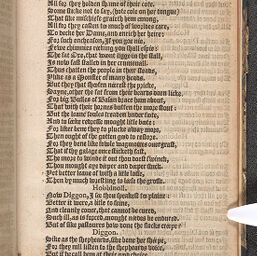 All for they holden shame of their cote.
Some sticke not to say, (hote cole on her tongue)
That sike mischiefe graseth hem emong,
All for they casten too much of worldes care,
To decke her Dame, and enrich her heire:
For such encheason, If you goe nie,
Fewe chimnies reeking you shall espie:
The fat Oxe, that wont ligge in the stall,
Is now fast stalled in her crumenall.
Thus chatten the people in their steads,
Ylike as a Monster of many heads.
But they that shooten neerest the pricke,
Sayne, other the fat from their beards doen lick.
For big Bulles of Basan brace hem about,
That with their hornes butten the more stout:
But the leane soules treaden vnder foote,
And to seeke redresse mought little boote:
For liker bene they to plucke away more,
Then ought of the gotten good to restore.
For they bene like foule wagmoires ouergrast,
That if thy galage once sticketh fast,
The more to winde it out thou doest swincke,
Thou mought aye deeper and deeper sincke.
Yet better leaue of with a little losse,
Then by much wrestling to leese the grosse.
Hobbinoll.
Now Diggon, I see thou speakest to plaine
Better it were, a little to feine,
And cleanly couer, that cannot be cured,
Such ill, as is forced, mought nedes be endured.
But of sike pastoures how done the flocks creepe?
Diggon.
Sike as the shepheards, sike bene her sheepe,
For they nill listen to the shepheards voice,
But if he call hem at their good choice